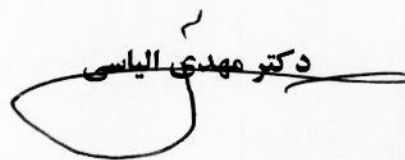 دکتر مهدی الیاسی